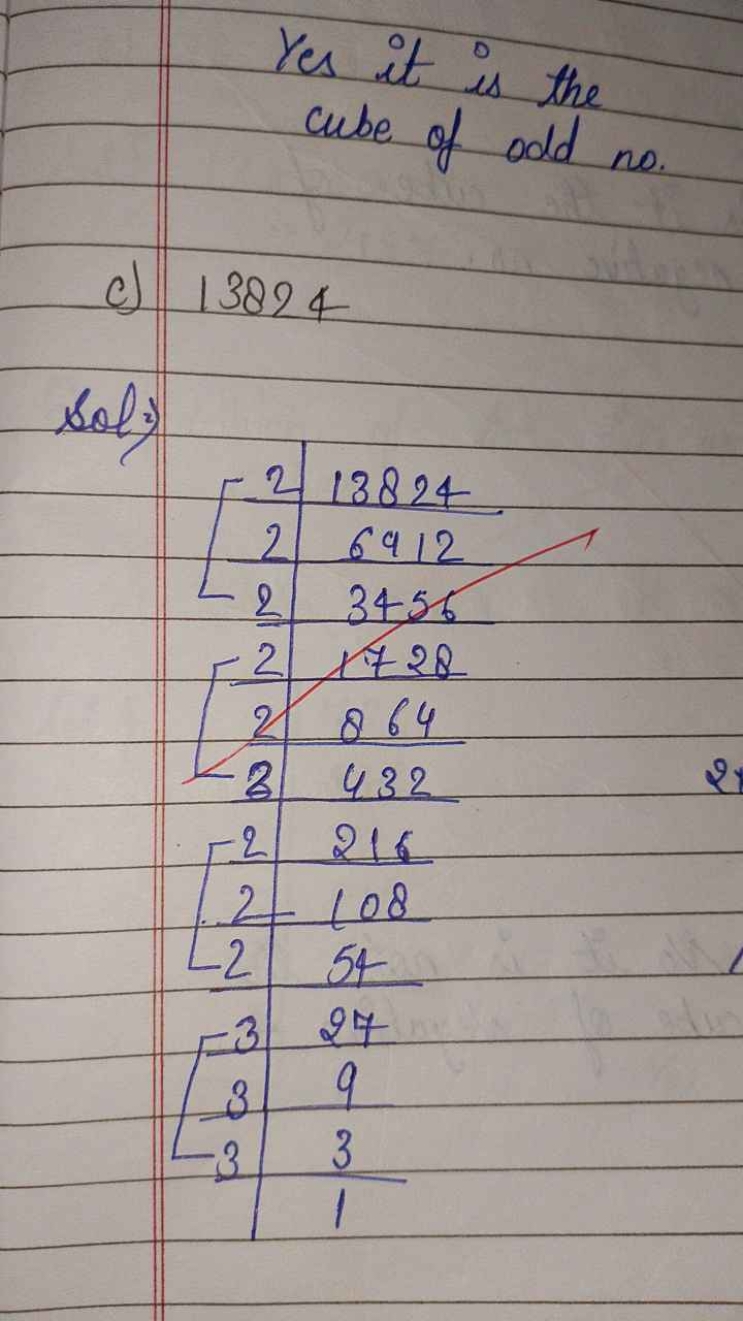 Yes it is the
cube of odd no.
c) 13824
Sol⇒
2 | 13824
2 | 6912
2 | 3456
2 | 1728
2 | 864
2 | 432
2 | 216
2 | 108
2 | 54
3 | 27
3 | 9
3 | 3
| 1